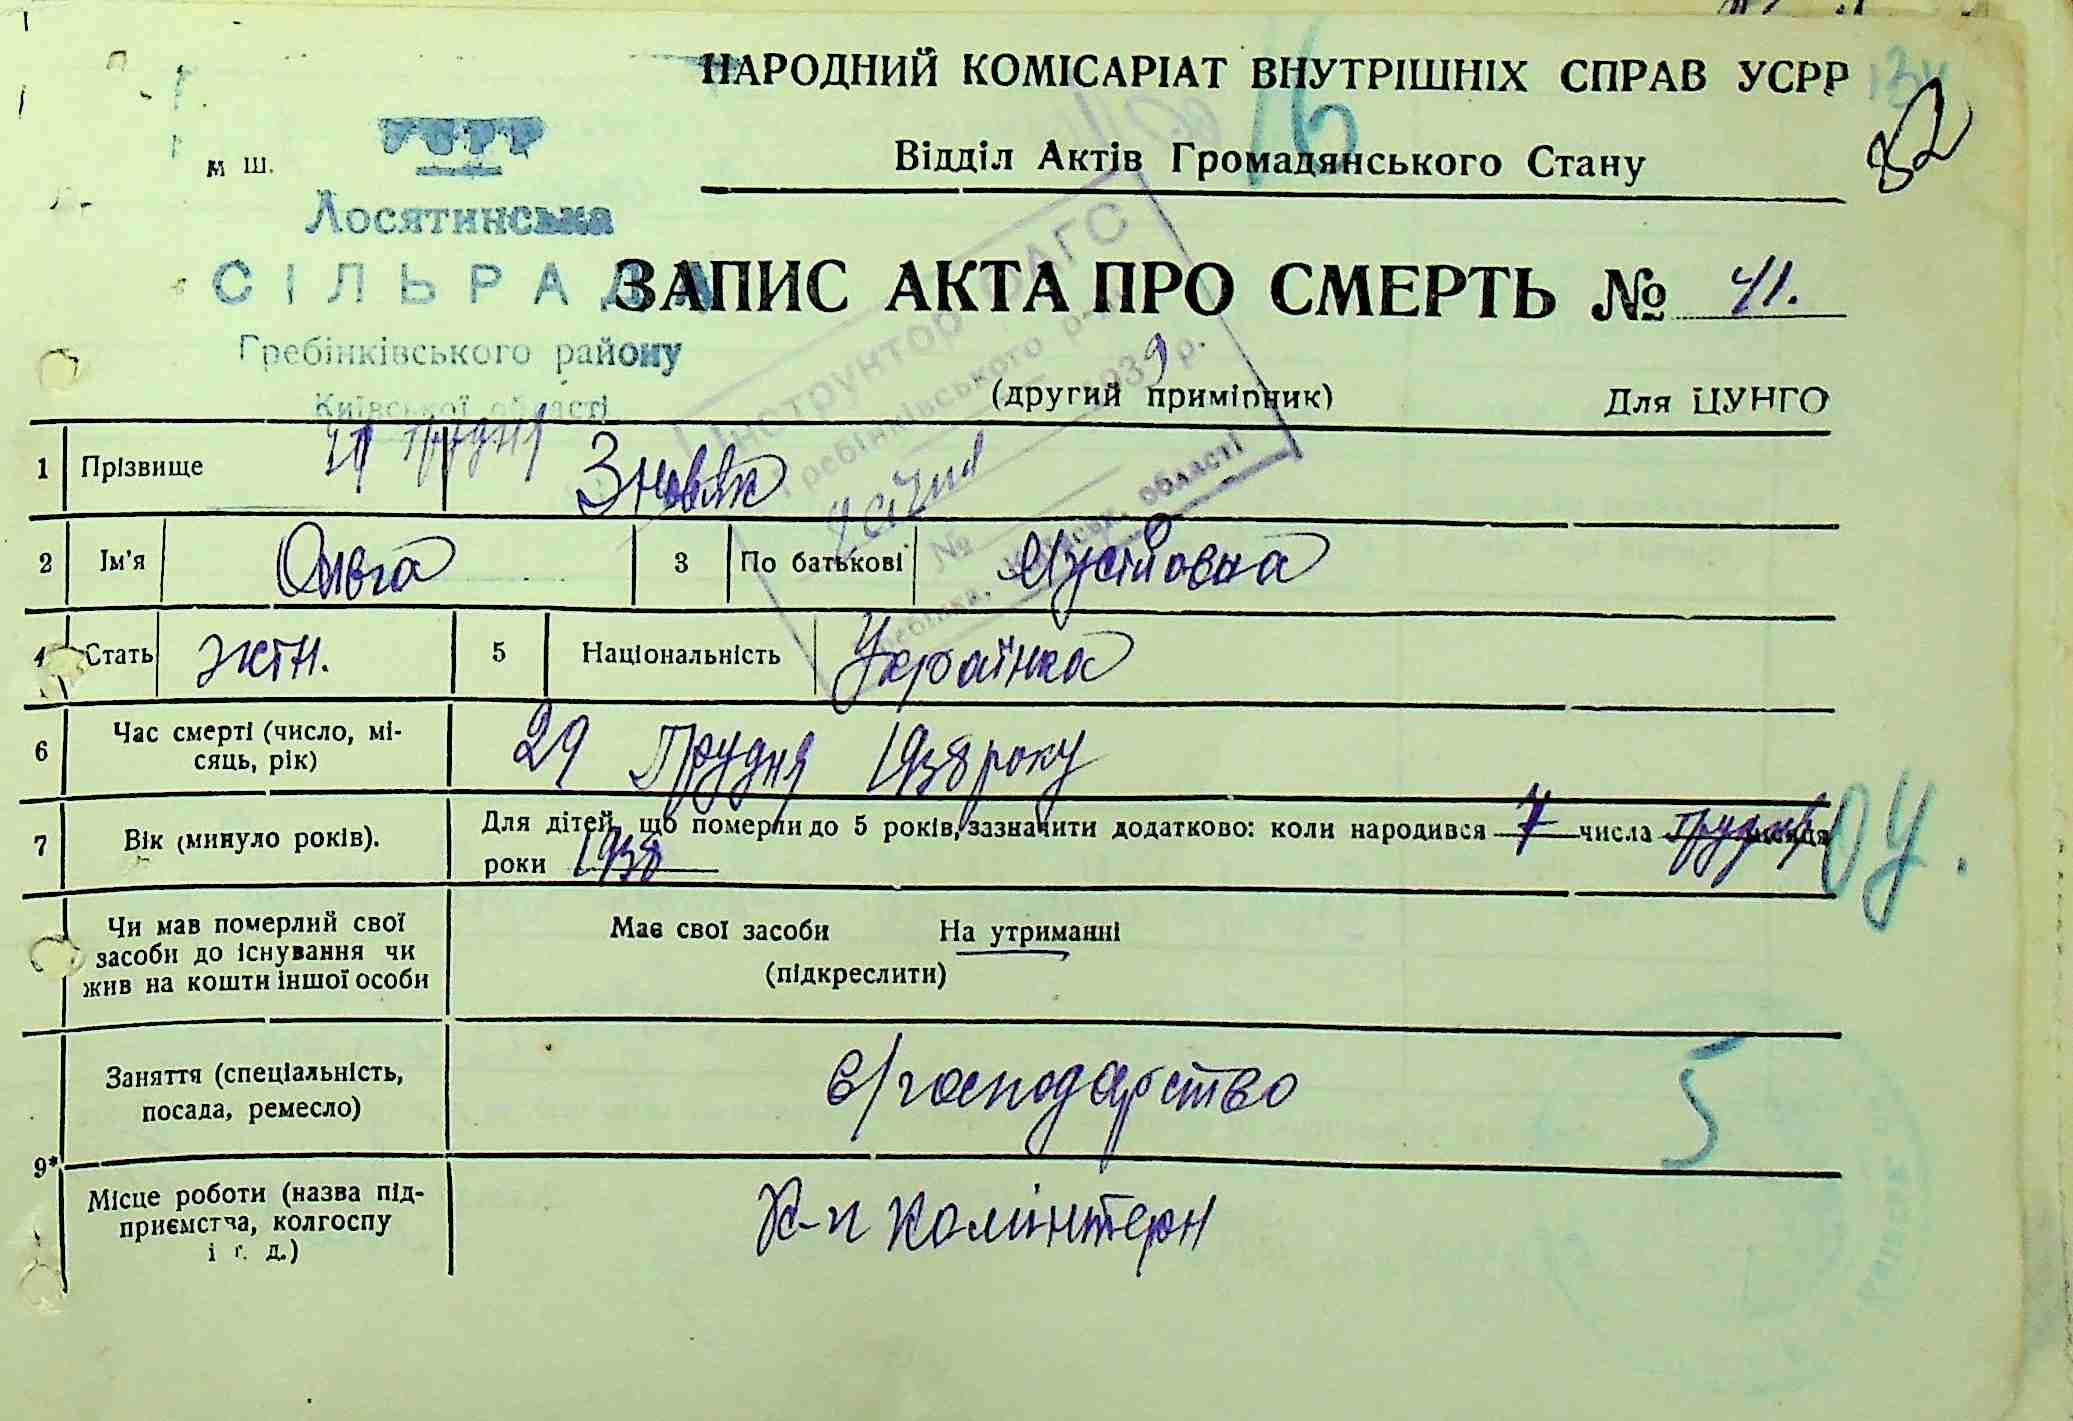 НАРОДНИЙ КОМІСАРІАТ ВНУТРІШНІХ СПРАВ УСРР
16
82
Відділ Актів Громадянського Стану
м ш.
УСРР
Лосятинська
СІЛЬРАДА
Гребінківського району
Київської області
ЗАПИС АКТА ПРО СМЕРТЬ № 41.
Інструктор ЗАГС
Гребінківського р-
1939 р.
№
Київськ. області
(другий примірник) Для ЦУНГО
грудня
1 Прізвище Зновяк
2 Ім'я Ольга 3 По батькові Устімовна
4 Стать жін. 5 Національність Українка
6 Час смерті (число, мі-
сяць, рік) 29 Грудня 1938 року
7 Вік (минуло років). Для дітей, що померли до 5 років, зазначити додатково: коли народився 7 числа Грудня місяця
роки 1938
ОУ.
Чи мав померлий свої
засоби до існування чи
жив на кошти іншої особи
Має свої засоби На утриманні
(підкреслити)
Заняття (спеціальність,
посада, ремесло) с/господарство
5
9*
Місце роботи (назва під-
приємства, колгоспу
і т. д.) К-п Комінтерн